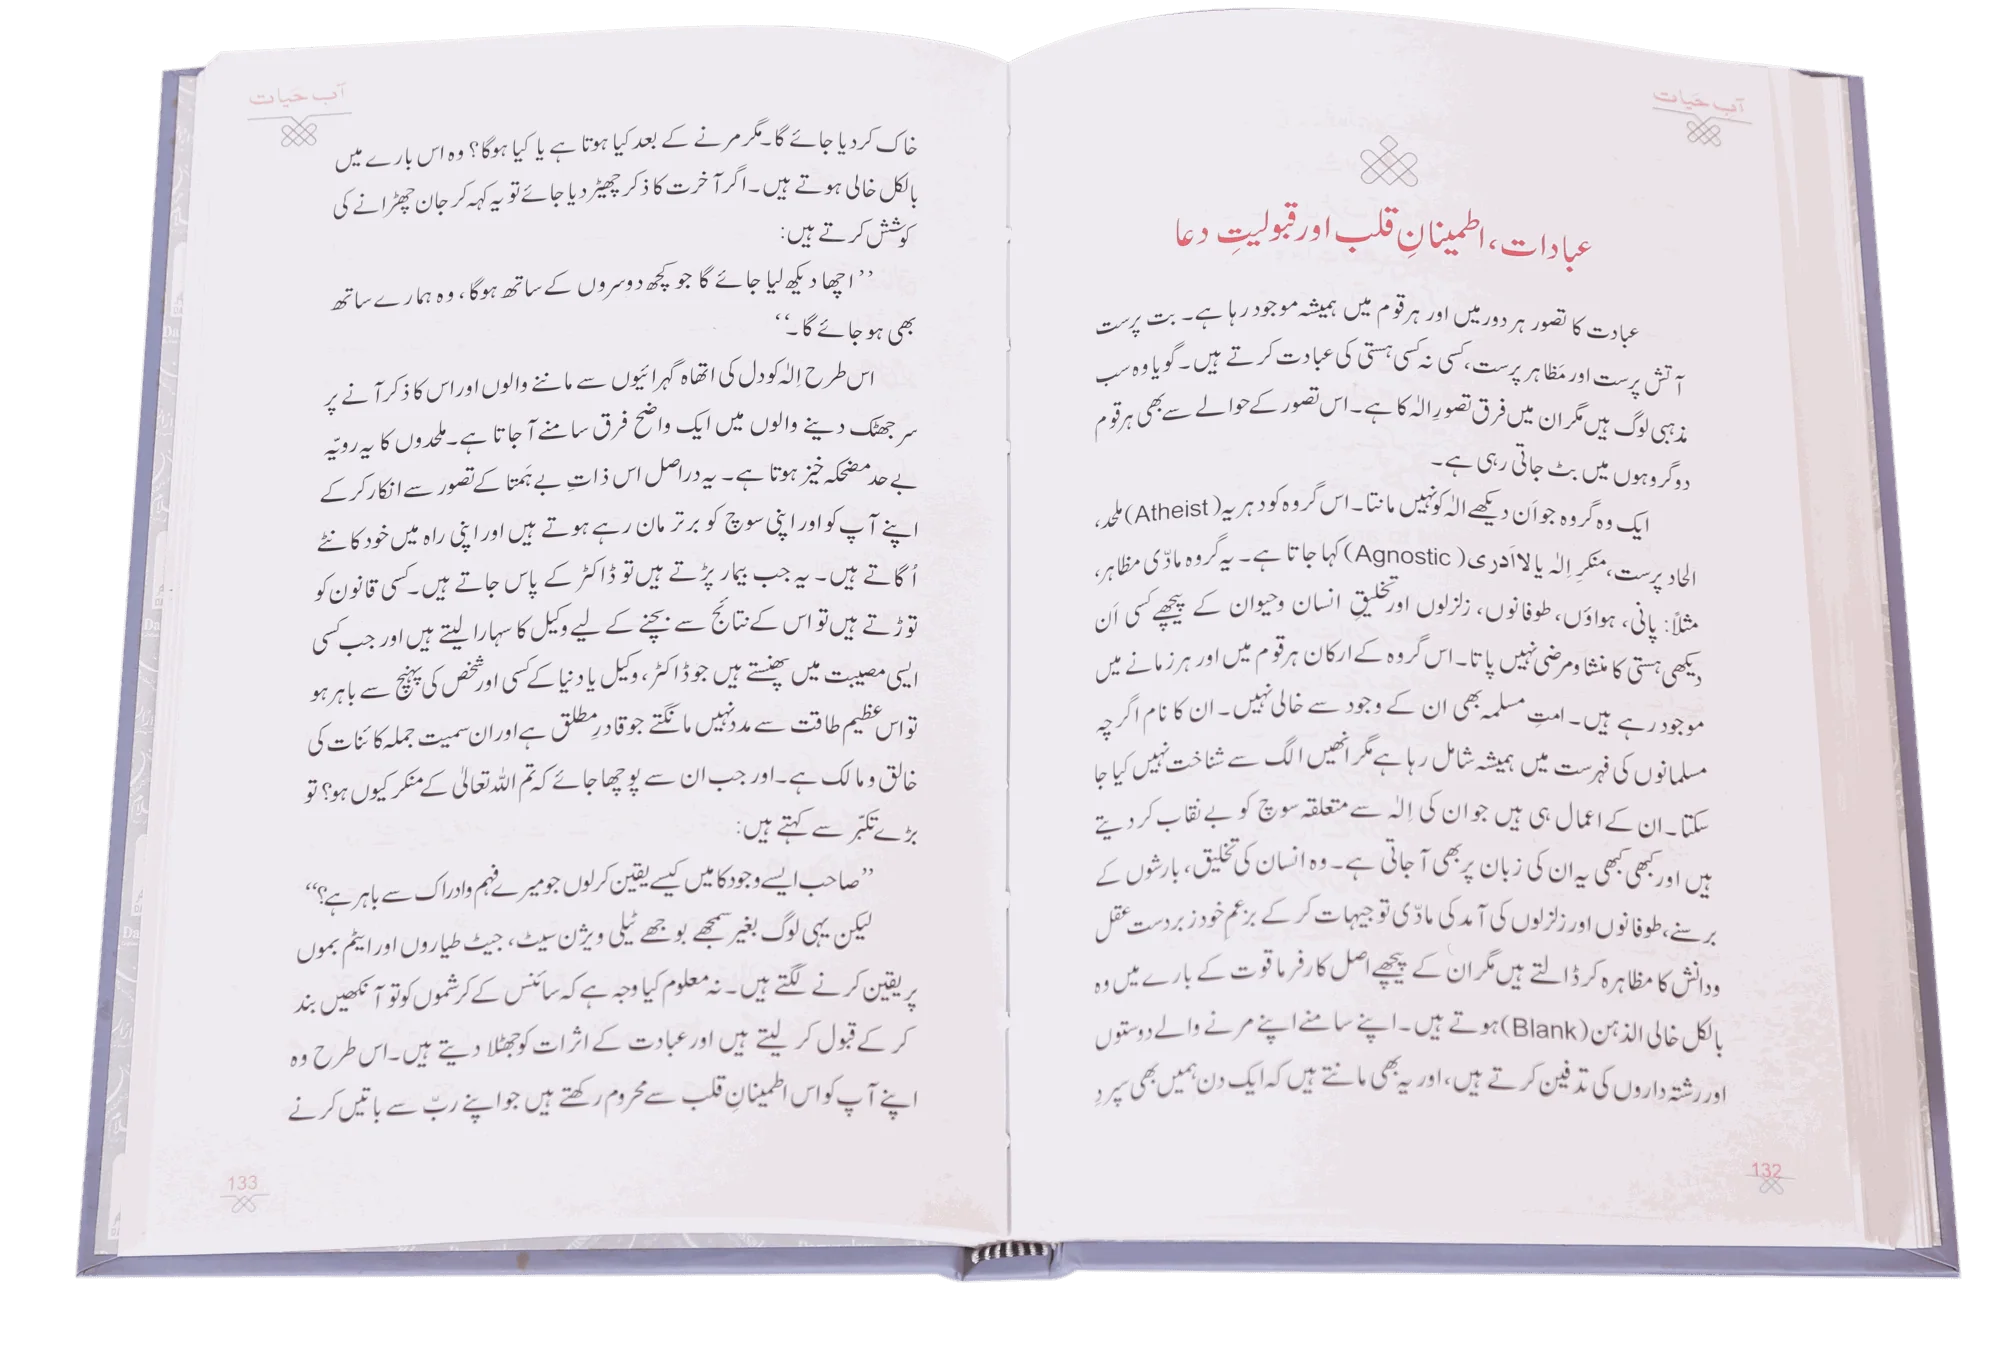 آبِ حیات
عبادات، اطمینانِ قلب اور قبولیتِ دعا
عبادت کا تصور ہر دور میں اور ہر قوم میں ہمیشہ موجود رہا ہے۔ بت پرست
آتش پرست اور مَظاہر پرست، کسی نہ کسی ہستی کی عبادت کرتے ہیں۔ گویا وہ سب
مذہبی لوگ ہیں مگر ان میں فرق تصورِ الٰہ کا ہے۔ اس تصور کے حوالے سے بھی ہر قوم
دو گروہوں میں بٹ جاتی رہی ہے۔
ایک وہ گروہ جو اَن دیکھے الٰہ کو نہیں مانتا۔ اس گروہ کو دہریہ (Atheist) ملحد،
الحاد پرست، منکرِ اِلٰہ یا لااَدری (Agnostic) کہا جاتا ہے۔ یہ گروہ مادّی مظاہر،
مثلاً: پانی، ہواؤں، طوفانوں، زلزلوں اور تخلیقِ انسان وحیوان کے پیچھے کسی اَن
دیکھی ہستی کا منشا ومرضی نہیں پاتا۔ اس گروہ کے ارکان ہر قوم میں اور ہر زمانے میں
موجود رہے ہیں۔ امتِ مسلمہ بھی ان کے وجود سے خالی نہیں۔ ان کا نام اگرچہ
مسلمانوں کی فہرست میں ہمیشہ شامل رہا ہے مگر انھیں الگ سے شناخت نہیں کیا جا
سکتا۔ ان کے اعمال ہی ہیں جو ان کی اِلٰہ سے متعلقہ سوچ کو بے نقاب کر دیتے
ہیں اور کبھی کبھی یہ ان کی زبان پر بھی آجاتی ہے۔ وہ انسان کی تخلیق، بارشوں کے
برسنے، طوفانوں اور زلزلوں کی آمد کی مادّی توجیہات کر کے بزعمِ خود زبردست عقل
ودانش کا مظاہرہ کر ڈالتے ہیں مگر ان کے پیچھے اصل کارفرما قوت کے بارے میں وہ
بالکل خالی الذہن (Blank) ہوتے ہیں۔ اپنے سامنے اپنے مرنے والے دوستوں
اور رشتہ داروں کی تدفین کرتے ہیں، اور یہ بھی مانتے ہیں کہ ایک دن ہمیں بھی سپردِ
132
آبِ حیات
خاک کر دیا جائے گا۔ مگر مرنے کے بعد کیا ہوتا ہے یا کیا ہوگا؟ وہ اس بارے میں
بالکل خالی ہوتے ہیں۔ اگر آخرت کا ذکر چھیڑ دیا جائے تو یہ کہہ کر جان چھڑانے کی
کوشش کرتے ہیں:
’’اچھا دیکھ لیا جائے گا جو کچھ دوسروں کے ساتھ ہوگا، وہ ہمارے ساتھ
بھی ہو جائے گا۔‘‘
اس طرح اِلٰہ کو دل کی اتھاہ گہرائیوں سے ماننے والوں اور اس کا ذکر آنے پر
سر جھٹک دینے والوں میں ایک واضح فرق سامنے آجاتا ہے۔ ملحدوں کا یہ رویّہ
بے حد مضحکہ خیز ہوتا ہے۔ یہ دراصل اس ذاتِ بے ہَمتا کے تصور سے انکار کر کے
اپنے آپ کو اور اپنی سوچ کو برتر مان رہے ہوتے ہیں اور اپنی راہ میں خود کانٹے
اُگاتے ہیں۔ یہ جب بیمار پڑتے ہیں تو ڈاکٹر کے پاس جاتے ہیں۔ کسی قانون کو
توڑتے ہیں تو اس کے نتائج سے بچنے کے لیے وکیل کا سہارا لیتے ہیں اور جب کسی
ایسی مصیبت میں پھنستے ہیں جو ڈاکٹر، وکیل یا دنیا کے کسی اور شخص کی پہنچ سے باہر ہو
تو اس عظیم طاقت سے مدد نہیں مانگتے جو قادرِ مطلق ہے اور ان سمیت جملہ کائنات کی
خالق ومالک ہے۔ اور جب ان سے پوچھا جائے کہ تم اللہ تعالیٰ کے منکر کیوں ہو؟ تو
بڑے تکبّر سے کہتے ہیں:
’’صاحب ایسے وجود کا میں کیسے یقین کر لوں جو میرے فہم وادراک سے باہر ہے؟‘‘
لیکن یہی لوگ بغیر سمجھے بوجھے ٹیلی ویژن سیٹ، جیٹ طیاروں اور ایٹم بموں
پر یقین کرنے لگتے ہیں۔ نہ معلوم کیا وجہ ہے کہ سائنس کے کرشموں کو تو آنکھیں بند
کر کے قبول کر لیتے ہیں اور عبادت کے اثرات کو جھٹلا دیتے ہیں۔ اس طرح وہ
اپنے آپ کو اس اطمینانِ قلب سے محروم رکھتے ہیں جو اپنے ربّ سے باتیں کرنے
133